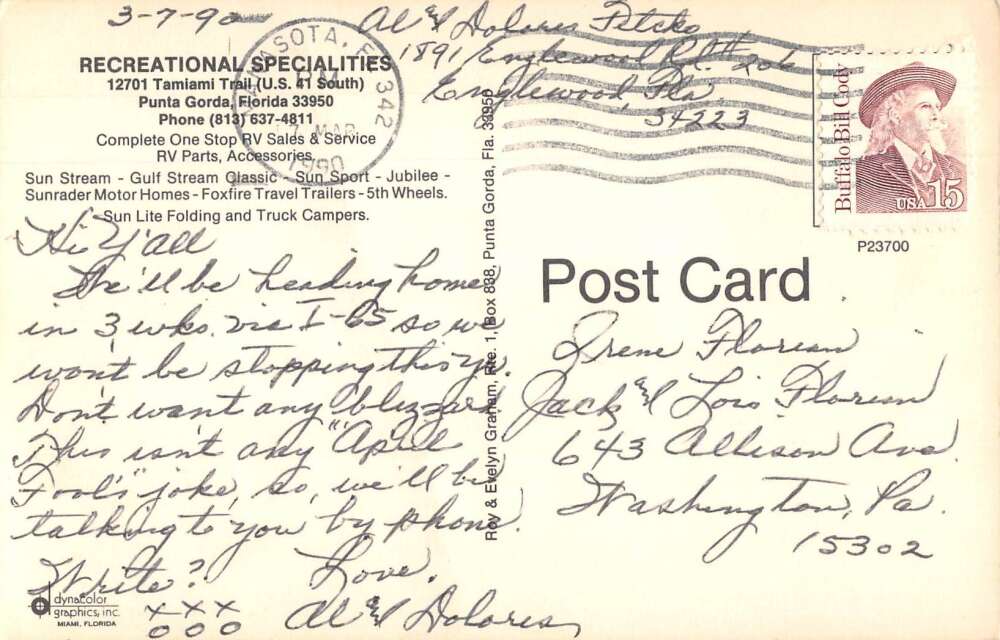 3-7-90
Al & Dolores Petcko
1891 Englewood Rd. #206
Englewood, Fla.
34223
RECREATIONAL SPECIALITIES
12701 Tamiami Trail (U.S. 41 South)
Punta Gorda, Florida 33950
Phone (813) 637-4811
Complete One Stop RV Sales & Service
RV Parts, Accessories
Sun Stream - Gulf Stream Classic - Sun Sport - Jubilee -
Sunrader Motor Homes - Foxfire Travel Trailers - 5th Wheels.
Sun Lite Folding and Truck Campers.
SOTA, FL 342
PM
7 MAR
1990
Buffalo Bill Cody
USA 15
P23700
Hi Y'all
We'll be heading home
in 3 wks. via I-65 so we
won't be stopping this yr.
Don't want any blizzard
This isn't any "April
Fool's" joke, so, we'll be
talking to you by phone.
Write? Love,
xxx
ooo
Al & Dolores
Roy & Evelyn Graham, Rte. 1, Box 838, Punta Gorda, Fla. 33950
Post Card
Irene Florian
Jack & Lois Florian
643 Allison Ave.
Washington, Pa.
15302
dynacolor
graphics, inc.
MIAMI, FLORIDA